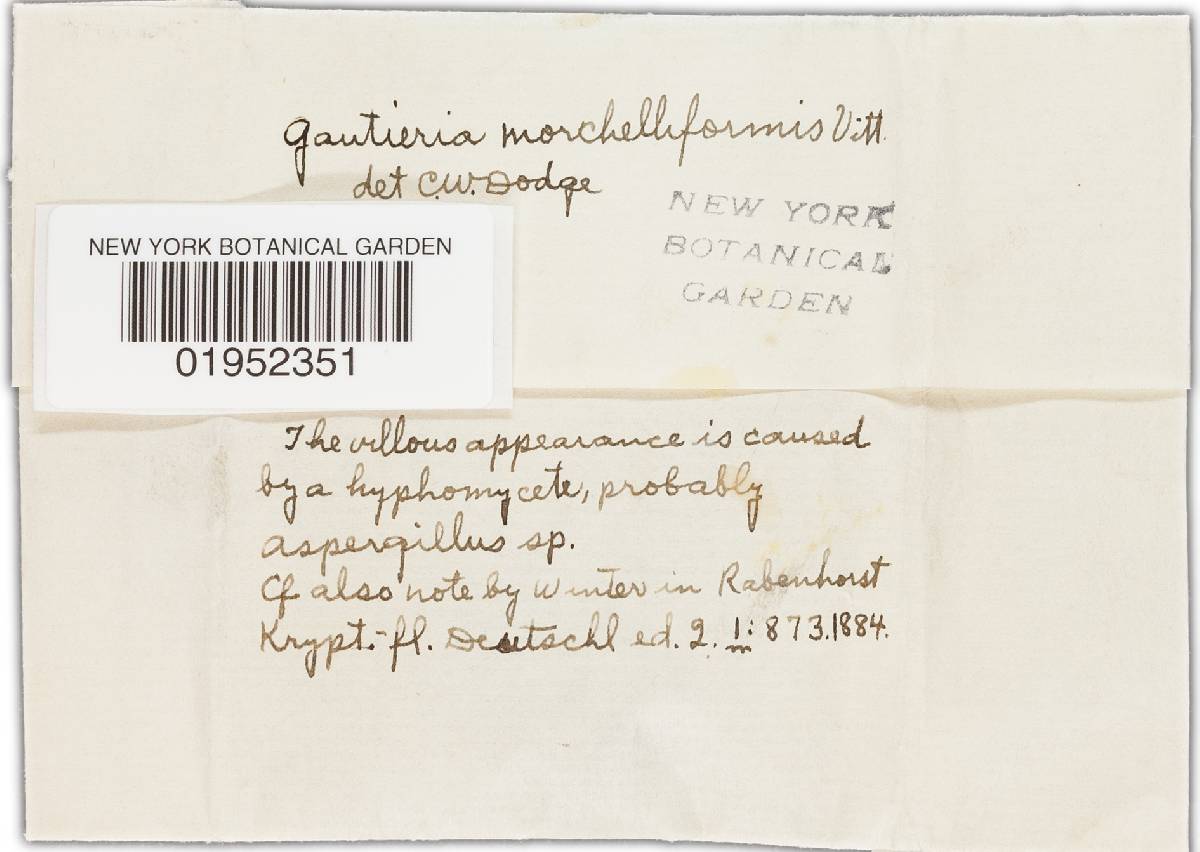 Gautieria morchelliformis Vitt.
det C.W. Dodge
NEW YORK
BOTANICAL
GARDEN
NEW YORK BOTANICAL GARDEN
01952351
The villous appearance is caused
by a hyphomycete, probably
Aspergillus sp.
Cf also note by Winter in Rabenhorst
Krypt.-fl. Deutschl ed. 2. 1: 873. 1884.